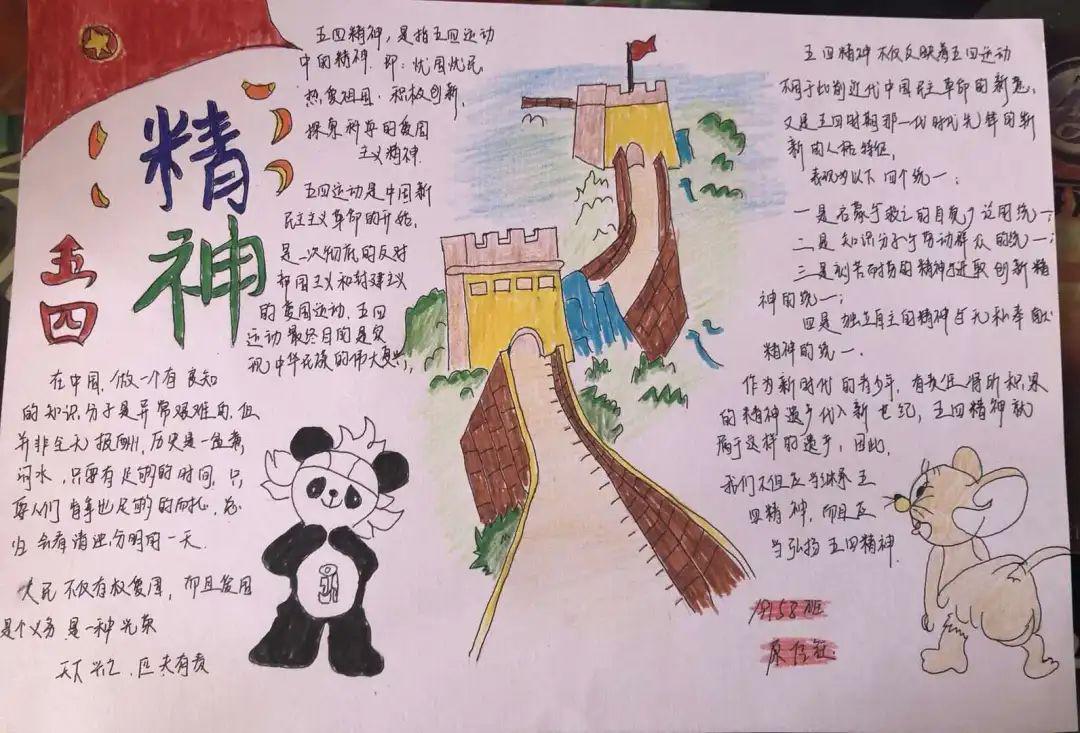 五四
精神
五四精神，是指五四运动
中的精神．即：忧国忧民
热爱祖国．积极创新，
探索科学的爱国
主义精神．
五四运动是中国新
民主主义革命的开始，
是一次彻底的反对
帝国主义和封建主义
的爱国运动．五四
运动最终目的是实
现中华民族的伟大复兴，
在中国，做一个有良知
的知识分子是异常艰难的，但
并非全无报酬，历史是一盘
问水，只要有足够的时间．只
要人们有足够的
会有清 分明的一天．
人民不仅有权爱国，而且爱国
是个义务 是一种光荣
天下兴亡．匹夫有责
五四精神不仅反映着五四运动
不同于以前近代中国民主革命的新
又是五四时期那一代时代先锋的
新的人格特征，
表现为以下四个统一：
一是启蒙与救亡的自觉 统一；
二是知识分子与劳动群众的统一；
三是刻苦耐劳的精神与进取创新精
神的统一；
四是独立自主的精神与无私奉献
精神的统一．
作为新时代的青少年，有责任将所积累
的精神遗产代入新世纪，五四精神就
属于这样的遗产，因此，
我们不但应当继承五
四精神，而且应
当弘扬五四精神．
58班